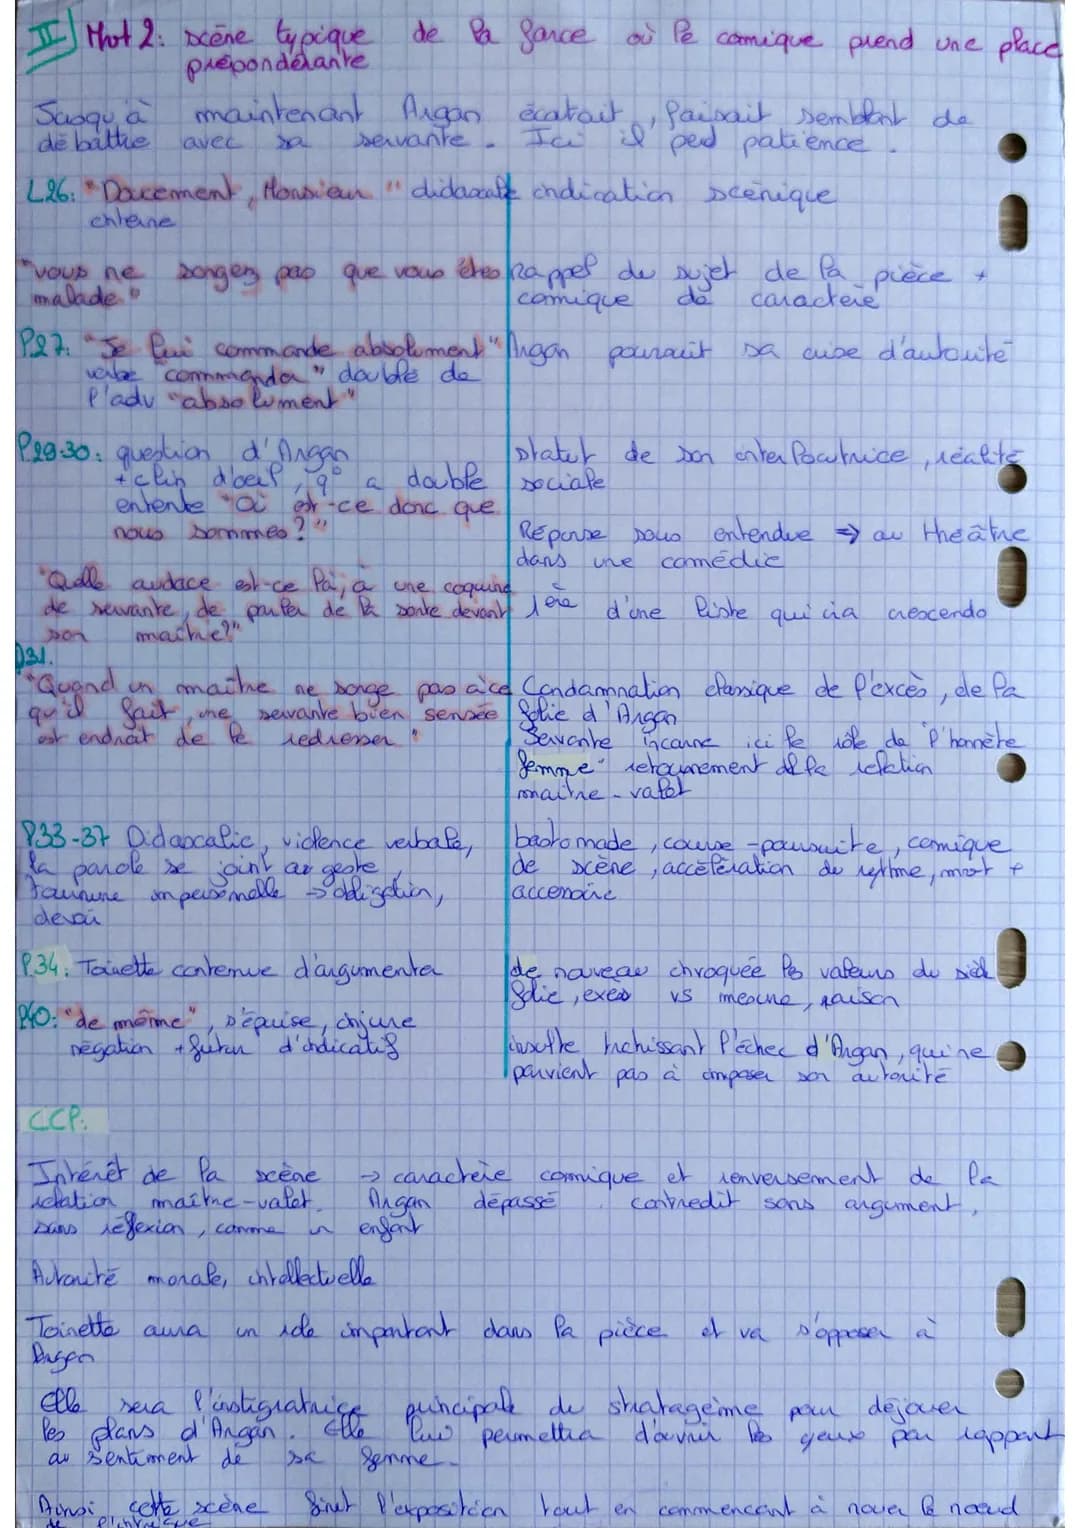 II) Mvt 2: scène typique de la farce où le comique prend une place
prépondérante
Jusqu'à maintenant Argan écoutait, faisait semblant de
débattre avec sa servante. Ici il perd patience.
L26: "Doucement, Monsieur" didascalie indication scénique
interne
"vous ne songez pas que vous êtes rappel du sujet de la pièce +
malade" comique de caractère
l27: "Je lui commande absolument" Argan poursuit sa crise d'autorité
verbe "commander" doublé de
l'adv "absolument"
l29-30: question d'Argan statut de son interlocutrice, réalité
+ clin d'oeil, q° a double sociale
entente "Où est-ce donc que
nous sommes?" Réponse sous entendue ⇒ au théâtre
dans une comédie
"Quelle audace est-ce là, à une coquine
de servante, de parler de la sorte devant 1ère d'une liste qui ira crescendo
son maître?"
l31.
"Quand un maître ne songe pas à ce Condamnation classique de l'excès, de la
qu'il fait, une servante bien sensée folie d'Argan
est endroit de le redresser" Servante incarne ici le rôle de l'honnête
femme" retournement de la relation
maître-valet
l33-37 Didascalie, violence verbale, bastonnade, course-poursuite, comique
la parole se joint au geste, de scène, accélération du rythme, mort +
tournure impersonnelle → obligation, accessoire
devoir
l.34: Toinette continue d'argumenter de nouveau chroquée les valeurs du siècle
folie, excès vs mesure, raison
l40: "de même", s'épuise, injure
négation + futur d'indicatif insulte trahissant l'échec d'Argan, qui ne
parvient pas à imposer son autorité
CCP:
Intérêt de la scène → caractère comique et renversement de la
relation maître-valet. Argan dépassé. contredit sans argument,
sans réflexion, comme un enfant
Autorité morale, intellectuelle
Toinette aura un rôle important dans la pièce et va s'opposer à
Argan
Elle sera l'instigratrice principale du stratagème pour déjouer
les plans d'Argan. Elle lui permettra d'ouvrir les yeux par rapport
au sentiment de sa femme.
Ainsi cette scène finit l'exposition tout en commençant à nouer le noeud
de l'intrigue